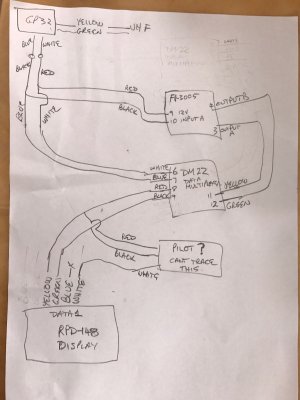 GP32
YELLOW
GREEN
VHF
BLUE
WHITE
BLACK
RED
BLUE
WHITE
RED
BLACK
FA-3005
9 12V
10 INPUT A
4 OUTPUT B
3 OUTPUT A
WHITE 6
BLUE 7
RED 8
BLACK 9
DM22
DATA
MULTIPLEXER
11
12
YELLOW
GREEN
RED
BLACK
WHITE
PILOT?
CAN'T TRACE
THIS
YELLOW
GREEN
BLUE
WHITE
DATA 1
RPD-148
DISPLAY